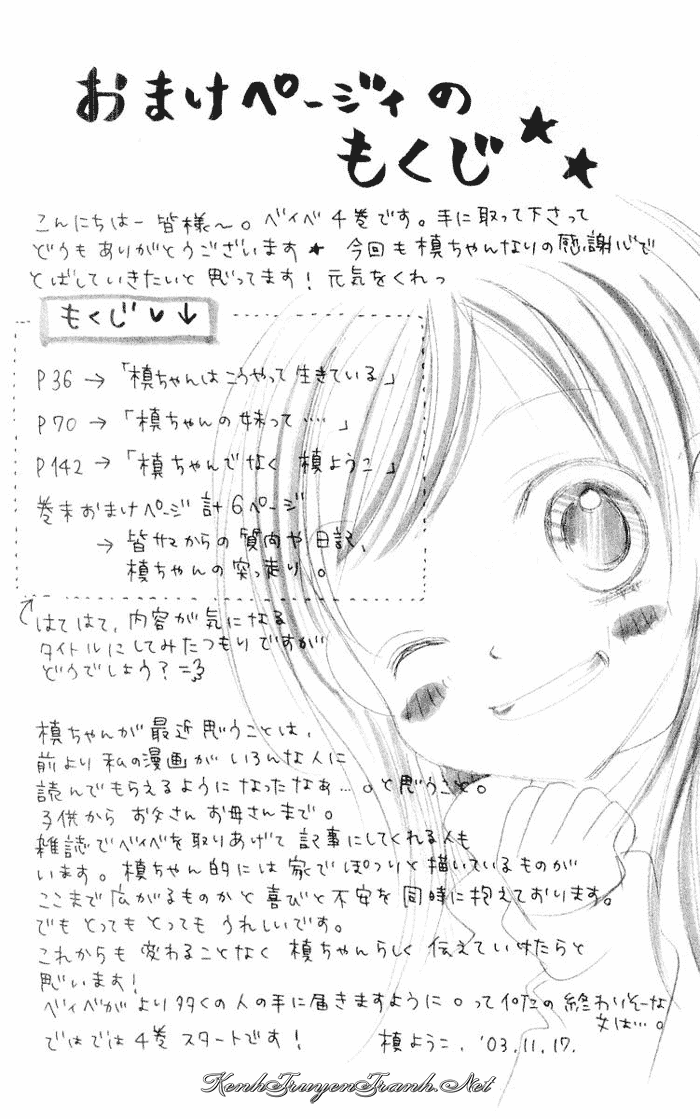 おまけページィの
もくじ
こんにちはー 皆様〜。ベイベ4巻です。手に取って下さって
どうもありがとうございます★ 今回も槙ちゃんなりの感謝心で
とばしていきたいと思ってます! 元気をくれっ
もくじ♥↓
P36→「槙ちゃんはこうやって生きている」
P70→「槙ちゃんの妹って‥‥」
P142→「槙ちゃんでなく 槙ようこ」
巻末おまけページ 計6ページ
→ 皆サマからの質問や日記、
槙ちゃんの突っ走り。
はてはて、内容が気になる
タイトルにしてみたつもりですが
どうでしょう?
槙ちゃんが最近思うことは、
前より私の漫画がいろんな人に
読んでもらえるようになったなぁ…。と思うこと。
子供からお父さんお母さんまで。
雑誌でベイベを取りあげて記事にしてくれる人も
います。槙ちゃん的には家でぽつりと描いているものが
ここまで広がるものかと喜びと不安を同時に抱えております。
でもとってもとってもうれしいです。
これからも変わることなく 槙ちゃんらしく伝えていけたらと
思います!
ベイベがより多くの人の手に届きますように。って何だの終わりそーな
文は…。
ではでは4巻スタートです! 槙ようこ. '03.11.17.
KenhTruyenTranh.Net